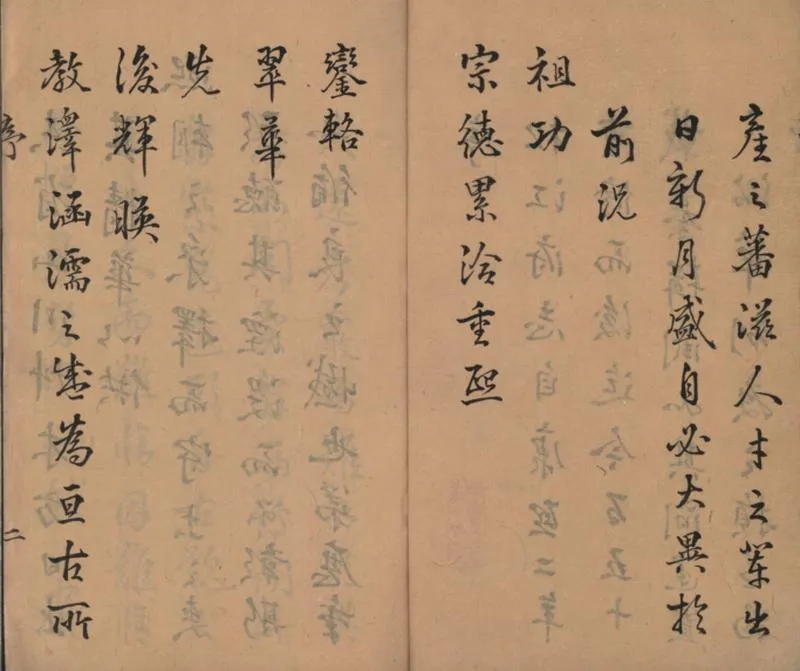 產之蕃滋人才之輩出
日新月盛自必大異於
前況
祖功
宗德累洽重熙
鑾輅
翠華
先
後輝暎
教澤涵濡之盛為亘古所
序
二